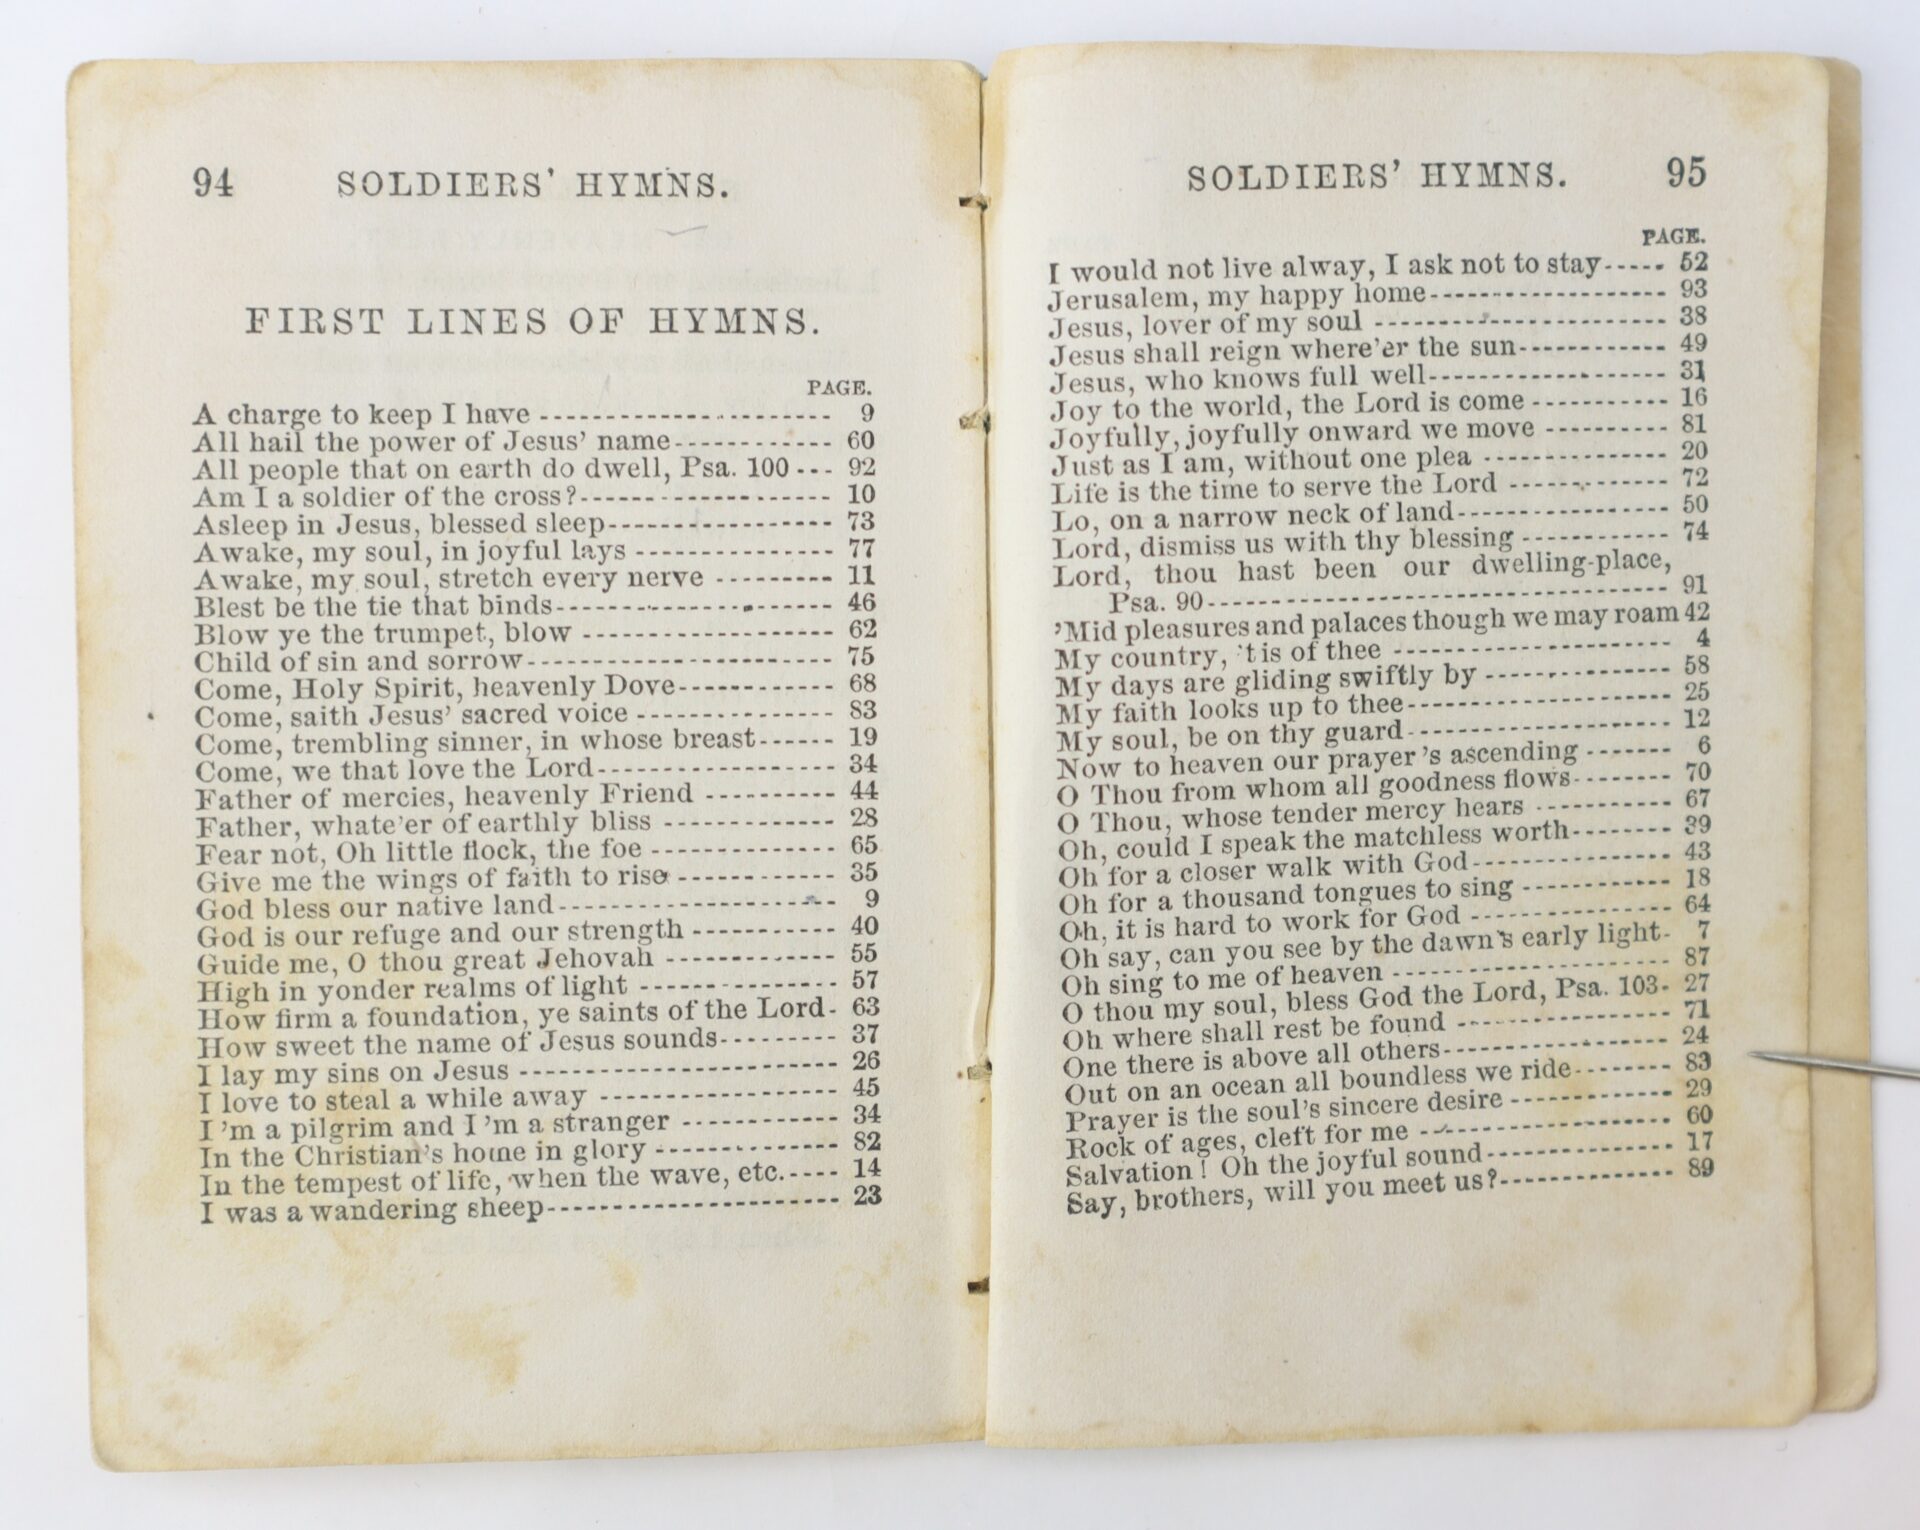 94 SOLDIERS' HYMNS.
FIRST LINES OF HYMNS.
PAGE.
A charge to keep I have ---------------------- 9
All hail the power of Jesus' name------------ 60
All people that on earth do dwell, Psa. 100 --- 92
Am I a soldier of the cross?-------------------- 10
Asleep in Jesus, blessed sleep----------------- 73
Awake, my soul, in joyful lays --------------- 77
Awake, my soul, stretch every nerve --------- 11
Blest be the tie that binds--------------------- 46
Blow ye the trumpet, blow ------------------- 62
Child of sin and sorrow----------------------- 75
Come, Holy Spirit, heavenly Dove------------ 68
Come, saith Jesus' sacred voice --------------- 83
Come, trembling sinner, in whose breast------ 19
Come, we that love the Lord------------------ 34
Father of mercies, heavenly Friend ---------- 44
Father, whate'er of earthly bliss ------------- 28
Fear not, Oh little flock, the foe -------------- 65
Give me the wings of faith to rise ------------ 35
God bless our native land--------------------- 9
God is our refuge and our strength ----------- 40
Guide me, O thou great Jehovah ------------- 55
High in yonder realms of light --------------- 57
How firm a foundation, ye saints of the Lord- 63
How sweet the name of Jesus sounds--------- 37
I lay my sins on Jesus ------------------------ 26
I love to steal a while away ------------------ 45
I 'm a pilgrim and I 'm a stranger ------------ 34
In the Christian's home in glory -------------- 82
In the tempest of life, when the wave, etc.---- 14
I was a wandering sheep---------------------- 23
SOLDIERS' HYMNS. 95
PAGE.
I would not live alway, I ask not to stay----- 52
Jerusalem, my happy home------------------- 93
Jesus, lover of my soul ----------------------- 38
Jesus shall reign where'er the sun------------ 49
Jesus, who knows full well------------------- 31
Joy to the world, the Lord is come ----------- 16
Joyfully, joyfully onward we move ---------- 81
Just as I am, without one plea --------------- 20
Life is the time to serve the Lord ------------- 72
Lo, on a narrow neck of land----------------- 50
Lord, dismiss us with thy blessing ------------ 74
Lord, thou hast been our dwelling-place,
Psa. 90------------------------------------ 91
'Mid pleasures and palaces though we may roam 42
My country, 'tis of thee ---------------------- 4
My days are gliding swiftly by --------------- 58
My faith looks up to thee--------------------- 25
My soul, be on thy guard--------------------- 12
Now to heaven our prayer 's ascending ------- 6
O Thou from whom all goodness flows-------- 70
O Thou, whose tender mercy hears ----------- 67
Oh, could I speak the matchless worth-------- 39
Oh for a closer walk with God---------------- 43
Oh for a thousand tongues to sing ------------ 18
Oh, it is hard to work for God ---------------- 64
Oh say, can you see by the dawn's early light- 7
Oh sing to me of heaven ---------------------- 87
O thou my soul, bless God the Lord, Psa. 103- 27
Oh where shall rest be found ----------------- 71
One there is above all others------------------ 24
Out on an ocean all boundless we ride-------- 83
Prayer is the soul's sincere desire ------------- 29
Rock of ages, cleft for me -------------------- 60
Salvation! Oh the joyful sound--------------- 17
Say, brothers, will you meet us?-------------- 89